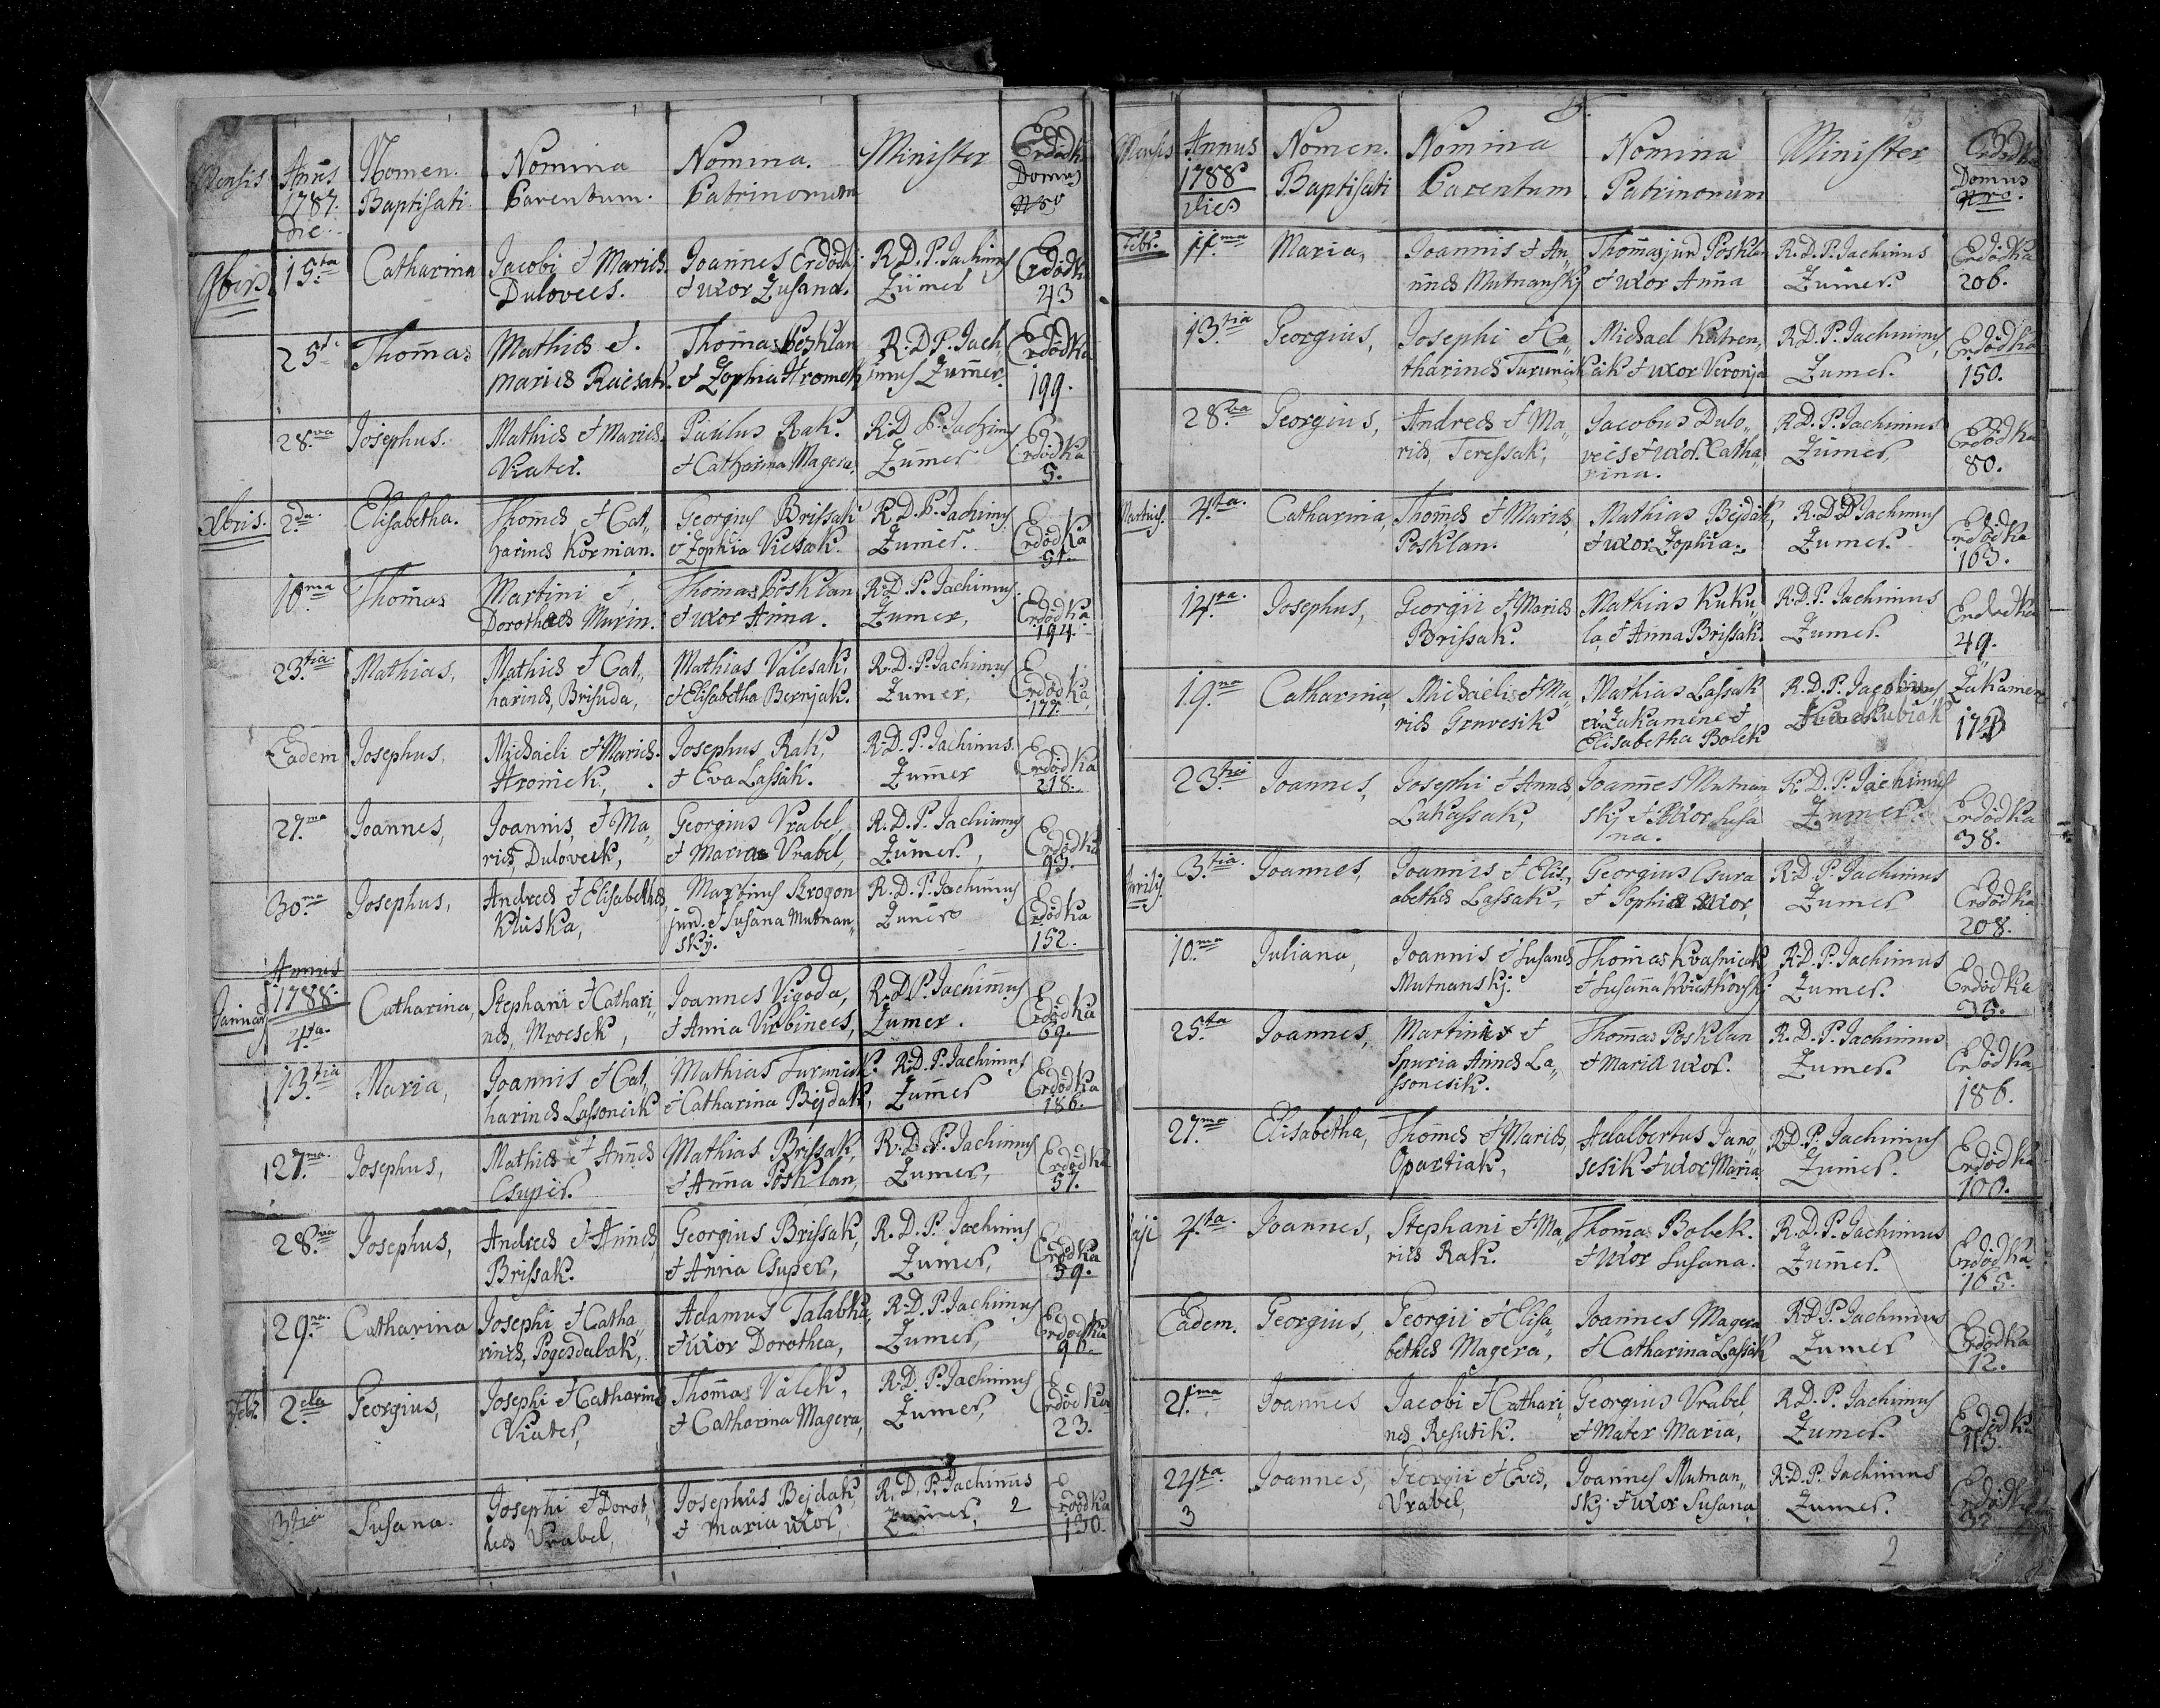 Mensis
Annus 1787. Die
Nomen. Baptisati
Nomina Parentum.
Nomina. Patrinorum
Minister
Erdödka Domus Nro
9bris
15.ta Catharina
Jacobi et Mariæ Dulovecs.
Joannes Erdődi et uxor Zusana.
R. D. P. Jachimus Zumer
Erdödka 43
25ta Thomas
Mathiæ et Mariæ
Thomas Posklan et Zophia Hromek
R. D. P. Jachimus Zumer.
Erdödka 199.
28.va Josephus.
Mathiæ et Mariæ Viater.
Paulus Rak. et Catharina Magera.
R. D. P. Jachimus Zumer
Erdödka 5.
Xbris.
2.da Elisabetha.
Thomæ et Catharinæ Kornian.
Georgius Brissak et Zophia Vicsak.
R. D. P. Jachimus Zumer.
Erdödka 51.
10.ma Thomas
Martini et Dorotheæ Murin.
Thomas Posklan et uxor Anna.
R. D. P. Jachimus Zumer,
Erdödka 194.
23.tia Mathias,
Mathiæ et Catharinæ, Brisuda,
Mathias Valesak, et Elisabetha Bernjak.
R. D. P. Jachimus Zumer,
Erdödka, 177.
Eadem Josephus,
Michaeli et Mariæ Hromek,
Josephus Rak, et Eva Lassak.
R. D. P. Jachimus. Zumer
Erdödka 218.
27.ma Joannes,
Joannis, et Mariæ, Dulovcik,
Georgius Vrabel, et Maria Vrabel,
R. D. P. Jachimus Zumer,
Erdödka 93.
30.ma Josephus,
Andreæ et Elisabethæ Kluska,
Martinus Krogon jun. et Susana Mutnansky.
R. D. P. Jachimus Zumer
Erdödka 152.
Annus 1788.
Januar
4.ta Catharina,
Stephani et Catharinæ, Mrocsek,
Joannes Vigoda, et Anna Virbinecs,
R. D. P. Jachimus Zumer.
Erdödka 69.
13.tia Maria,
Joannis et Catharinæ Lassoncik
Mathias Turiniak. et Catharina Bejdak,
R. D. P. Jachimus Zumer
Erdödka 186.
27.ma Josephus,
Mathiæ et Annæ Csuper.
Mathias Brissak, et Anna Posklan,
R. D. P. Jachimus Zumer,
Erdödka 57.
28.va Josephus,
Andreæ et Annæ Brissak.
Georgius Brissak, et Anna Csuper,
R. D. P. Jachimus Zumer,
Erdödka 59.
29.na Catharina
Josephi et Catharinæ, Pogesdalak,
Adamus Talabka, et uxor Dorothea,
R. D. P. Jachimus Zumer,
Erdödka 96.
Febr.
2.da Georgius,
Josephi et Catharinæ Viater,
Thomas Valek, et Catharina Magera,
R. D. P. Jachimus Zumer,
Erdödka 23.
3tia Susana.
Josephi et Dorotheæ Vrabel,
Josephus Bejdak, et Maria uxor,
R. D. P. Jachimus Zumer, 2
Erdödka 130.
Mensis
Annus 1788 Dies
Nomen. Baptisati
Nomina Parentum
Nomina Patrinorum
Minister
Erdödka Domus Nro.
Febr.
11.ma Maria,
Joannis et Annæ Mutnansky
Thomas jun Posklan et uxor Anna
R. D. P. Jachimus Zumer.
Erdödka 206.
13.tia Georgius,
Josephi et Catharinæ Turuniak
Michael Katrencik et uxor Veronja
R. D. P. Jachimus, Zumer.
Erdödka 150.
28.va Georgius,
Andreæ et Mariæ, Teressak,
Jacobus Dulovecs et uxor. Catharina.
R. D. P. Jachimus Zumer,
Erdödka 80.
Martius.
4.ta. Catharina,
Thomæ et Mariæ, Posklan.
Mathias Bejdak, et uxor Zophia.
R. D. P. Jachimus Zumer.
Erdödka 163.
14.ta. Josephus,
Georgii et Mariæ Brissak.
Mathias Kukula, et Anna Brissak.
R. D. P. Jachimus Zumer.
Erdödka 49.
19.na Catharina,
Michaelis et Mariæ Gravesik
Mathias Lassak ex Zakamene et Elisabetha Bolek
R. D. P.
Zakamene
23.tia Joannes,
Josephi et Annæ, Lukassak,
Joannes Mutnansky et Uxor Susana.
R. D. P. Jachimus Zumer.
Erdödka 38.
Aprilis
3.tia. Joannes,
Joannis et Elisabethæ Lassak,
Georgius Csura et Sophia uxor,
R. D. P. Jachimus Zumer
Erdödka 208.
10.ma Juliana,
Joannis et Susanæ Mutnansky.
Thomas Kvasnicak et Susanna Kviethovsky
R. D. P. Jachimus Zumer.
Erdödka 35.
25.ta Joannes,
Martini et Spuria Annæ Lassoncsik.
Thomas Posklan et Maria uxor.
R. D. P. Jachimus Zumer.
Erdödka 186.
27.ma Elisabetha,
Thomæ et Mariæ, Opartiak,
Adalbertus Janosesik et uxor Maria.
R. D. P. Jachimus Zumer.
Erdödka 100.
4.ta. Joannes,
Stephani et Mariæ Rak.
Thomas Bolek. et Uxor Susana.
R. D. P. Jachimus Zumer.
Erdödka 165.
Eadem. Georgius,
Georgii et Elisabethæ Magera,
Joannes Magera et Catharina Lassak
R. D. P. Jachimus Zumer
Erdödka 12.
21.ma Joannes
Jacobi et Catharinæ Resutik.
Georgius Vrabel, et Mater Maria,
R. D. P. Jachimus Zumer.
Erdödka 113.
24ta Joannes,
3
Georgii et Evæ, Vrabel,
Joannes Mutnansky et Uxor Susana,
R. D. P. Jachimus Zumer.
Erdödka
2